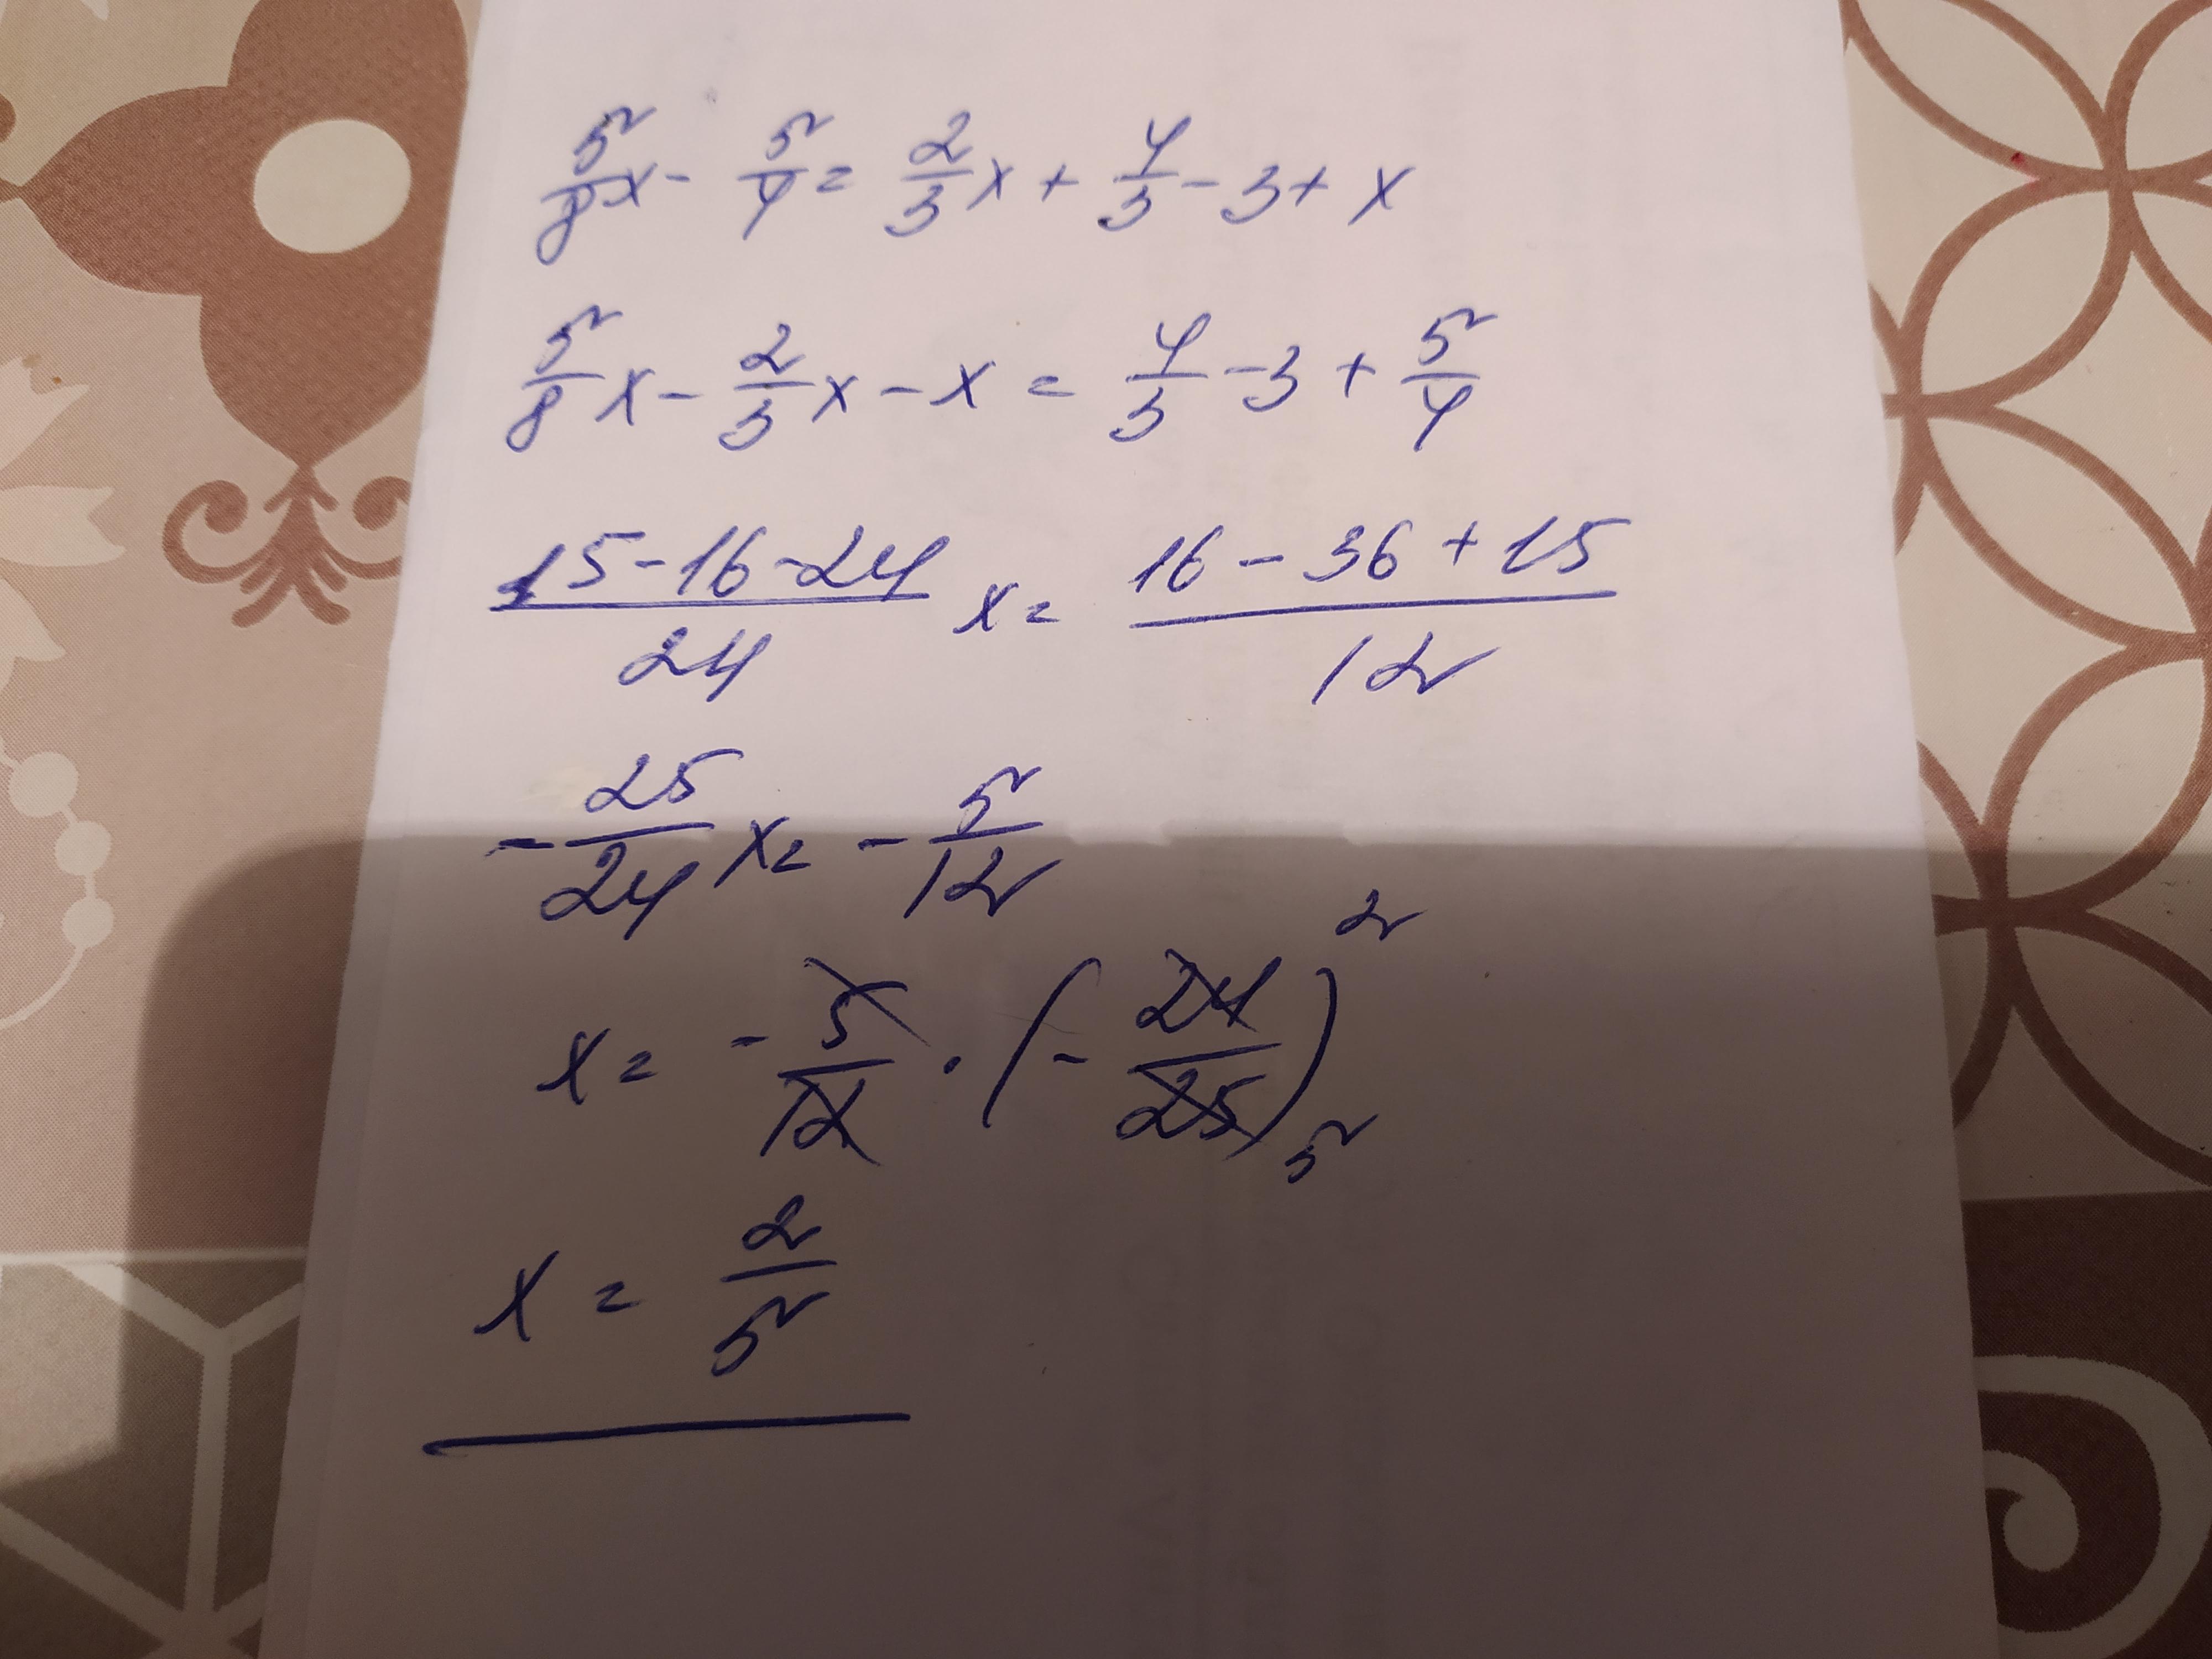 5/8 x - 5/4 = 2/3 x + 4/3 - 3 + x
5/8 x - 2/3 x - x = 4/3 - 3 + 5/4
15-16-24/24 x = 16-36+15/12
-25/24 x = -5/12
x = -5/12 · (-24/25) 2 5
x = 2/5